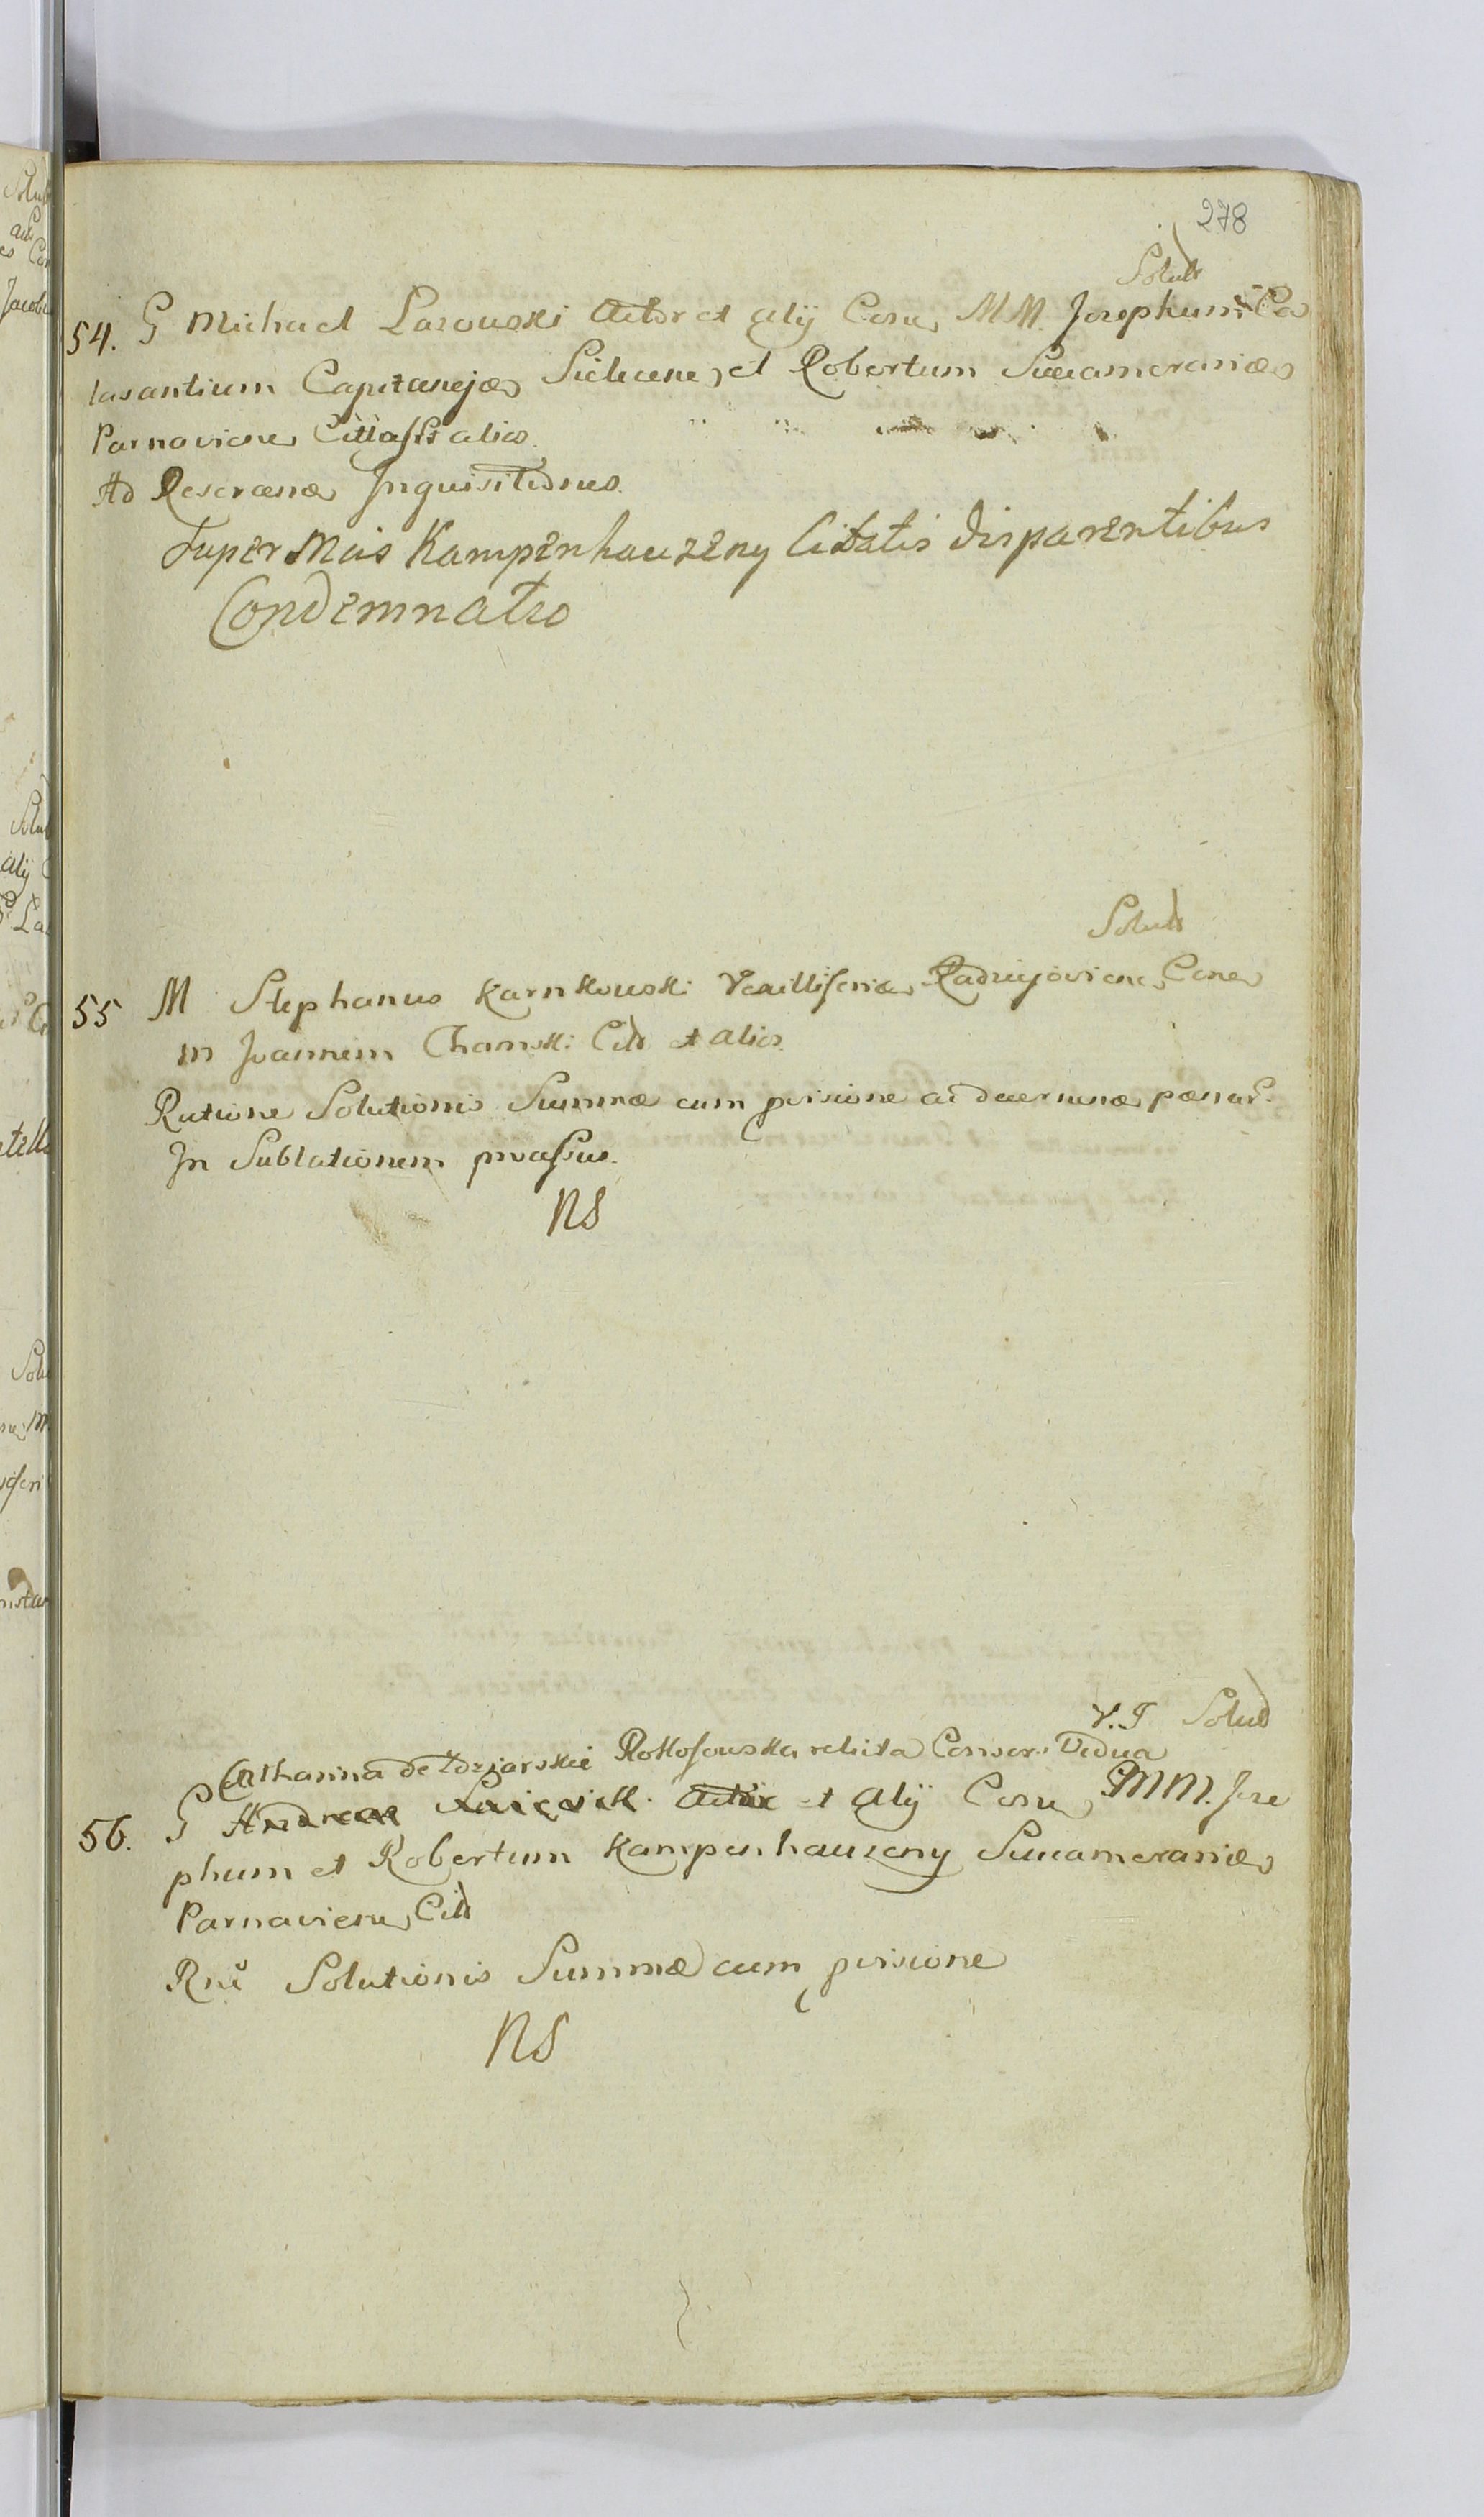 278
Solut
54. G Michael Lazowski Actor et alij Conu MM. Josephum Ca
lasantium Capitanejæ et Robertum Succamerariæ
Parnaviens Citt alios
Ad Reserænæ Inquisitiones
Super Mcis Kampenhauzeny Citatis disparentibus
Condemnatio
Solut
55 M Stephanus Karnkowski Vexilliferiæ Radziejoviens Cone
in Joannem Chamski Citt et alios
Ratione Solutionis Summæ cum pensione ac pænar
In Sublationem processus
NS
V. I Solut
Catharina de Rokosowska relicta Consors Vidua
56. G Andreas et alij Conu MM. Jose
phum et Robertum Kampenhauzeny Succamerariæ
Parnaviens Citt
Rne Solutionis Summæ cum pensione
NS